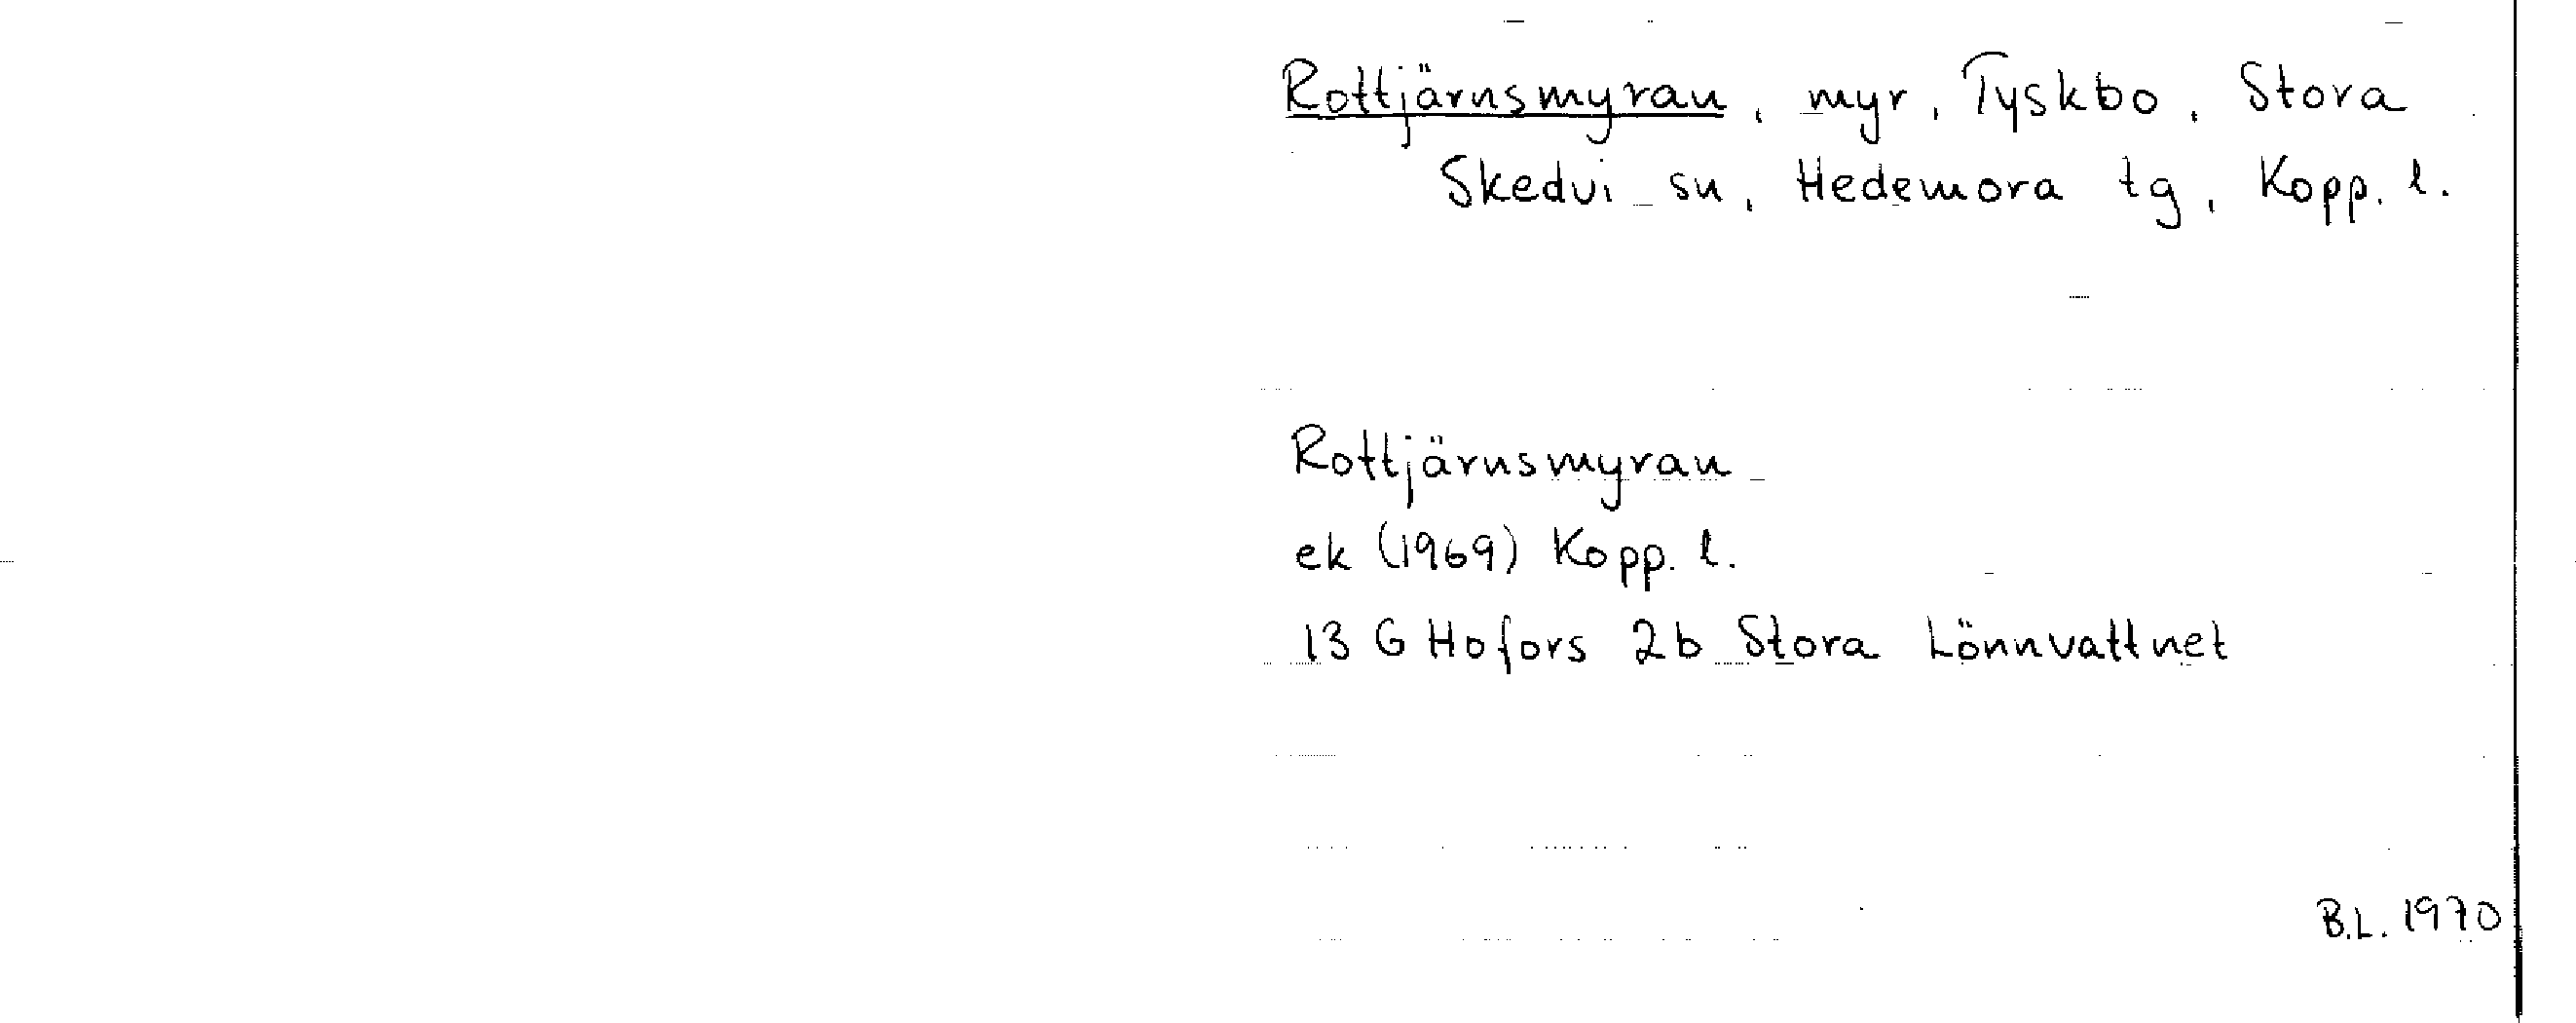 Rottjärnsmyran, myr, Tyskbo, Stora
Skedvi sn, Hedemora tg, Kopp. l.
Rottjärnsmyran
ek (1969) Kopp. l.
13 G Hofors 2b Stora Lönnvattnet
B.L. 1970